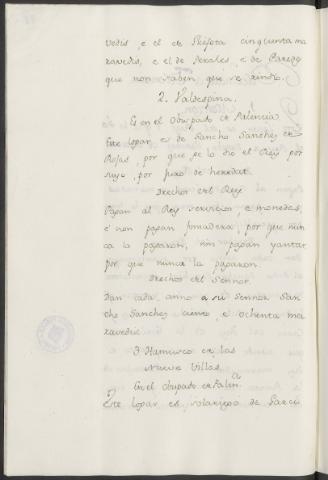 vedis, e el de Pesofta cinquenta ma
ravedis, e el de Perales, e de Paredes
que non saben que se rindio.
2. Valdespina.
Es en el Obispado de Palencia
Este logar, es de Sancho Sanchez de
Rojas, por que se lo dio el Rey por
suyo, por juro de heredat.
Drechos del Rey
Pagan al Rey servicios, e monedas,
e non pagan fonsadera, por que nun
ca la pagaron, nin pagan yantar
por que nunca la pagaron.
Drechos del Sennor.
Dan cada anno a su Sennor San
cho Sanchez ciento, e ochenta ma
ravedis.
3. Hamusco de las
Nueve Villas.
En el obispado de Palen.a
Este logar es solariego de Garci